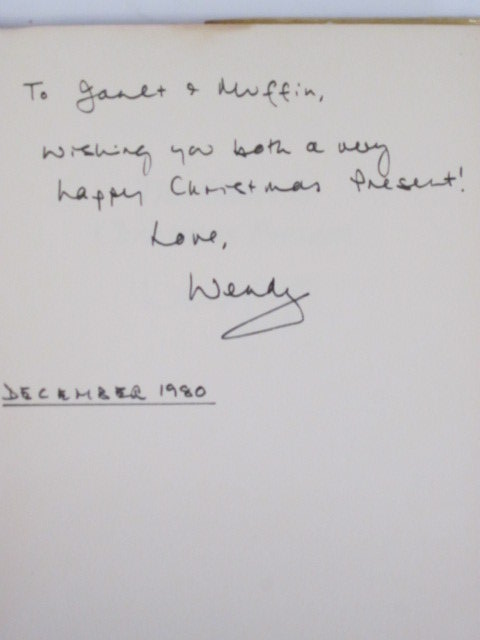 To Janet & Muffin,
Wishing you both a very
happy Christmas Present!
Love,
Wendy
DECEMBER 1980